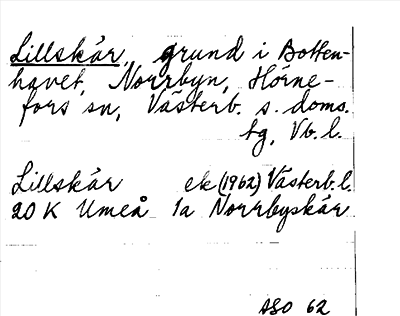 Lillskär, grund i Botten-
havet, Norrbyn, Hörne-
fors sn, Västerb. s. doms.
tg, Vb. l.
Lillskär ek (1962) Västerb. l.
20 K Umeå 1a Norrbyskär
ASO 62